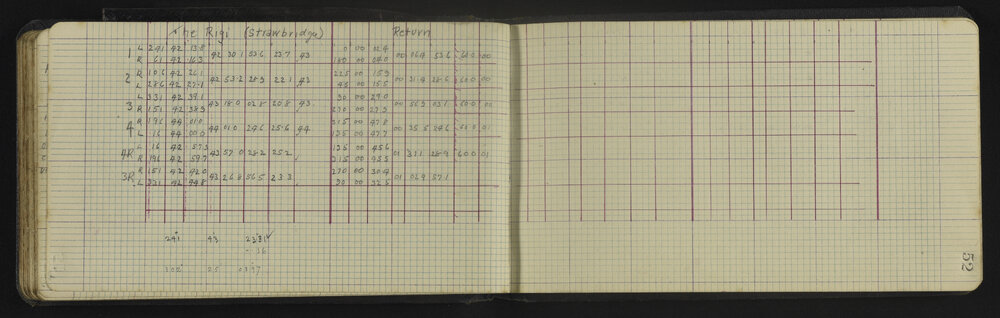 The Rigi (Strawbridge) Return
1 L 241 42 13.8 42 30.1 53.6 23.7 43 0 00 02.4 00 06.4 53.6 60.0 00
R 61 42 16.3 180 00 04.0
2 R 106 42 26.1 42 53.2 28.9 22.1 225 00 15.9 00 31.4 28.6 60.0 00
L 286 42 27.1 45 00 15.5
3 L 331 42 39.1 43 18.0 02.8 20.8 43 90 00 27.0 00 56.9 03.1 60.0 00
R 151 42 38.9 270 00 29.9
4 R 196 44 01.0 44 01.0 24.6 25.6 44 315 00 47.8 00 35.5 24.6 60.0 01
L 16 44 00.0 135 00 47.7
4R L 16 42 57.3 43 57.0 28.2 25.2 135 00 45.6 01 31.1 28.9 60.0 01
R 196 42 59.7 315 00 45.5
3R R 151 42 42.0 43 26.8 56.5 23.3 270 00 30.4 01 02.9 57.1
L 331 42 44.8 90 00 32.5
241 43 23.81 ✓
.36
302 25 03.97
52